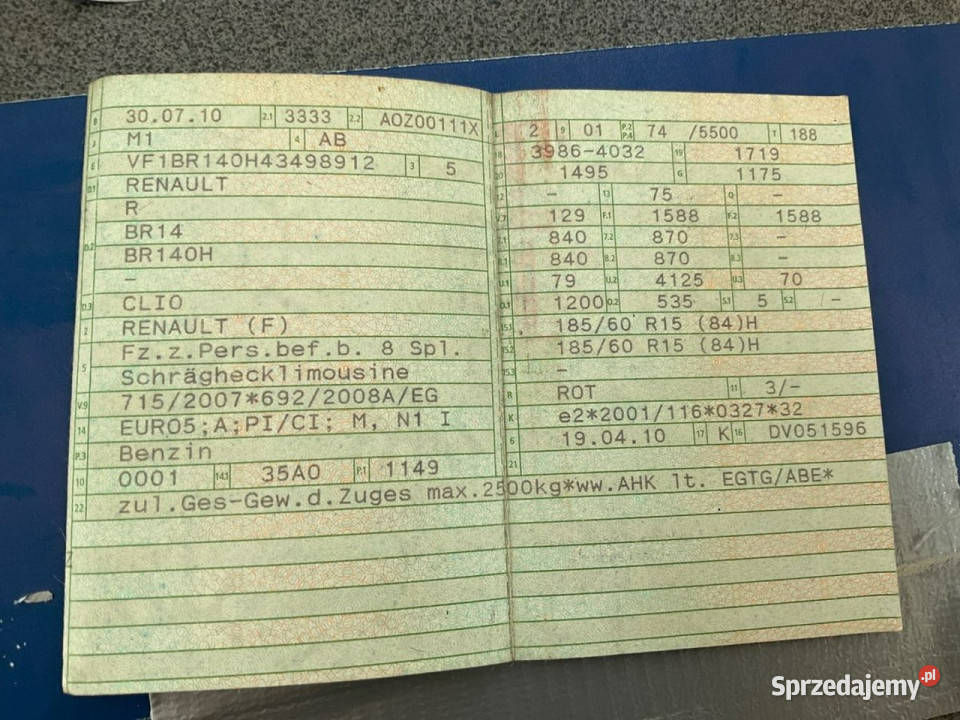 B 30.07.10 2.1 3333 2.2 AOZ00111X
J M1 4 AB
E VF1BR140H43498912 3 5
D.1 RENAULT
R
D.2 BR14
BR140H
–
D.3 CLIO
2 RENAULT (F)
5 Fz.z.Pers.bef.b. 8 Spl.
Schräghecklimousine
V.9 715/2007*692/2008A/EG
14 EURO5;A;PI/CI; M, N1 I
P.3 Benzin
10 0001 14.1 35A0 P.1 1149
22 zul.Ges-Gew.d.Zuges max.2500kg*ww.AHK lt. EGTG/ABE*
L 2 9 01 P.2 P.4 74 /5500 T 188
18 3986-4032 19 1719
20 1495 G 1175
12 – 13 75 Q –
V.7 129 F.1 1588 F.2 1588
7.1 840 7.2 870 7.3 –
8.1 840 8.2 870 8.3 –
U.1 79 U.2 4125 U.3 70
O.1 1200 O.2 535 S.1 5 S.2 –
15.1 185/60 R15 (84)H
15.2 185/60 R15 (84)H
15.3 –
R ROT 11 3/–
K e2*2001/116*0327*32
6 19.04.10 17 K 16 DV051596
21
Sprzedajemy.pl